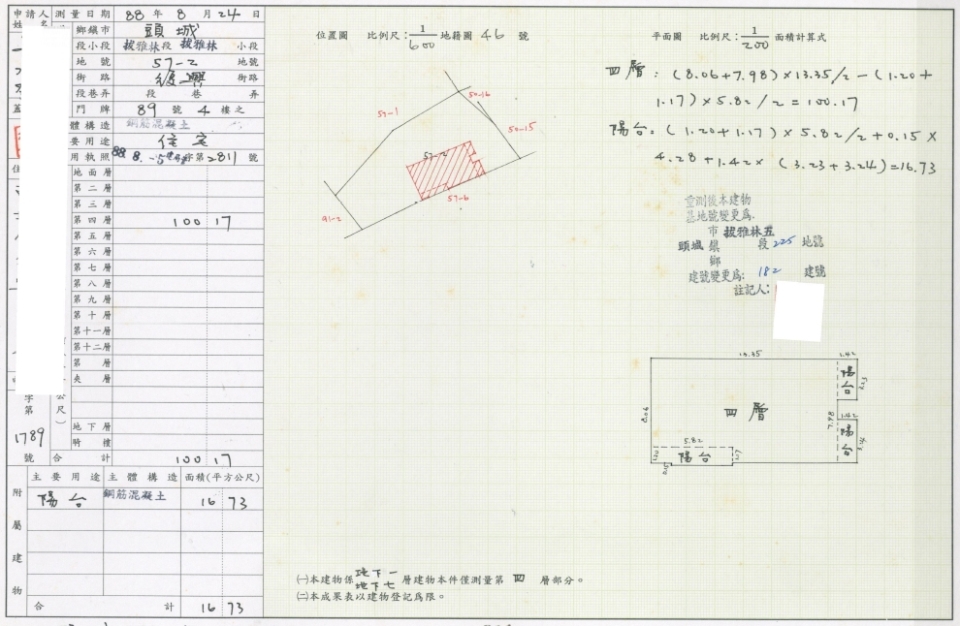 申請人
測量日期 88 年 8 月 24 日
鄉鎮市 頭城
段小段 拔雅林段 拔雅林 小段
地號 57-2 地號
街路 復興 街路
段巷弄 段 巷 弄
門牌 89 號 4 樓之
體構造 鋼筋混凝土
要用途 住宅
用執照 字第2811 號
地面層
第二層
第三層
第四層 100 17
第五層
第六層
第七層
第八層
第九層
第十層
第十一層
第十二層
第 層
夾層
地下層
騎樓
合計 100 17
字第
1789
號
公尺)
附屬建物
主要用途 主體構造 面積(平方公尺)
陽台 鋼筋混凝土 16 73
合計 16 73
位置圖 比例尺:1/600 地籍圖 46 號
57-1
50-16
50-15
57-2
57-6
91-2
平面圖 比例尺:1/200 面積計算式
四層:(8.06+7.98)×13.35/2-(1.20+
1.17)×5.82/2=100.17
陽台:(1.20+1.17)×5.82/2+0.15×
4.28+1.42×(3.23+3.24)=16.73
重測後本建物
基地號變更為
市 拔雅林五
頭城 鎮 段 225 地號
鄉
建號變更為: 182 建號
註記人:
13.35
1.42
陽台
3.23
8.06
四層
7.98
1.42
陽台
3.24
5.82
1.20
陽台
1.17
0.15
㈠本建物係 地下一 地下七 層建物本件僅測量第 四 層部分。
㈡本成果表以建物登記為限。